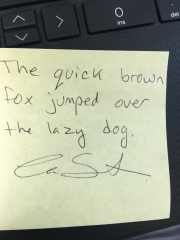 0
ins
del
The quick brown
fox jumped over
the lazy dog.